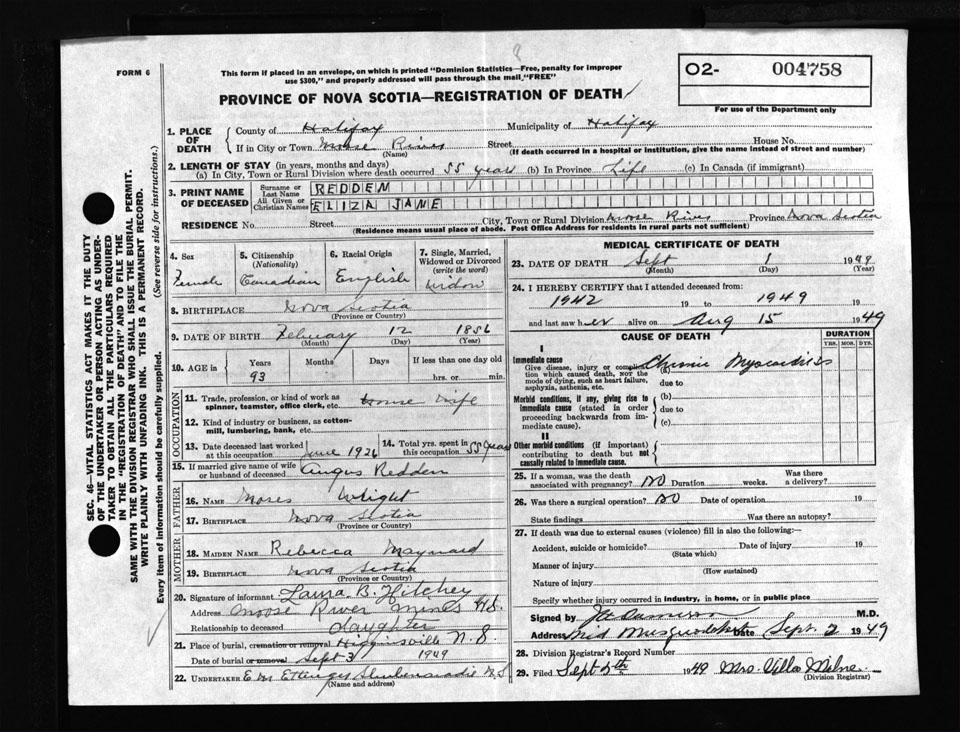 FORM 6
This form if placed in an envelope, on which is printed "Dominion Statistics—Free, penalty for improper
use $300," and properly addressed will pass through the mail "FREE"
O2- 004758
For use of the Department only
PROVINCE OF NOVA SCOTIA—REGISTRATION OF DEATH
SEC. 46—VITAL STATISTICS ACT MAKES IT THE DUTY
OF THE UNDERTAKER OR PERSON ACTING AS UNDER-
TAKER TO OBTAIN ALL THE PARTICULARS REQUIRED
IN THE "REGISTRATION OF DEATH" AND TO FILE THE
SAME WITH THE DIVISION REGISTRAR WHO SHALL ISSUE THE BURIAL PERMIT.
WRITE PLAINLY WITH UNFADING INK. THIS IS A PERMANENT RECORD.
Every item of information should be carefully supplied. (See reverse side for instructions.)
1. PLACE OF DEATH County of Halifax Municipality of Halifax
If in City or Town Moose River Street House No.
(Name) (If death occurred in a hospital or institution, give the name instead of street and number)
2. LENGTH OF STAY (in years, months and days)
(a) In City, Town or Rural Division where death occurred 55 years (b) In Province Life (c) In Canada (if immigrant)
3. PRINT NAME OF DECEASED Surname or Last Name REDDEN
All Given or Christian Names ELIZA JANE
RESIDENCE No. Street City, Town or Rural Division Moose River Province Nova Scotia
(Residence means usual place of abode. Post Office Address for residents in rural parts not sufficient)
4. Sex Female
5. Citizenship (Nationality) Canadian
6. Racial Origin English
7. Single, Married, Widowed or Divorced (write the word) Widow
8. BIRTHPLACE Nova Scotia
(Province or Country)
9. DATE OF BIRTH February 12 1856
(Month) (Day) (Year)
10. AGE in Years 93 Months Days If less than one day old hrs. or min.
OCCUPATION
11. Trade, profession, or kind of work as
spinner, teamster, office clerk, etc. House Wife
12. Kind of industry or business, as cotton-
mill, lumbering, bank, etc.
13. Date deceased last worked at this occupation June 1926
14. Total yrs. spent in this occupation 55 years
15. If married give name of wife
or husband of deceased Angus Redden
FATHER
16. NAME Moses Wright
17. BIRTHPLACE Nova Scotia
(Province or Country)
MOTHER
18. MAIDEN NAME Rebecca Maynard
19. BIRTHPLACE Nova Scotia
(Province or Country)
20. Signature of informant Laura B. Hitchey
Address Moose River Mines N.S.
Relationship to deceased daughter
21. Place of burial, cremation or removal Higginsville N.S
Date of burial or removal Sept 3 1949
22. UNDERTAKER E M Ettinger Shubenacadie N.S
(Name and address)
MEDICAL CERTIFICATE OF DEATH
23. DATE OF DEATH Sept 1 1949
(Month) (Day) (Year)
24. I HEREBY CERTIFY that I attended deceased from:
1942 19 to 1949 19
and last saw her alive on Aug 15 1949
CAUSE OF DEATH DURATION
YRS. MOS. DYS.
I
Immediate cause
Give disease, injury or complication which caused death, not the mode of dying, such as heart failure, asphyxia, asthenia, etc.
(a) Chronic Myocarditis
due to
Morbid conditions, if any, giving rise to immediate cause (stated in order proceeding backwards from immediate cause).
(b)
due to
(c)
II
Other morbid conditions (if important) contributing to death but not causally related to immediate cause.
25. If a woman, was the death associated with pregnancy? No Duration weeks. Was there a delivery?
26. Was there a surgical operation? No Date of operation 19
State findings Was there an autopsy?
27. If death was due to external causes (violence) fill in also the following:—
Accident, suicide or homicide? Date of injury 19
(State which)
Manner of injury
(How sustained)
Nature of injury
Specify whether injury occurred in industry, in home, or in public place
Signed by M.D.
Address Mid Musquodoboit Date Sept. 2 1949
28. Division Registrar's Record Number
29. Filed Sept 5th 1949 Mrs. Milne
(Division Registrar)